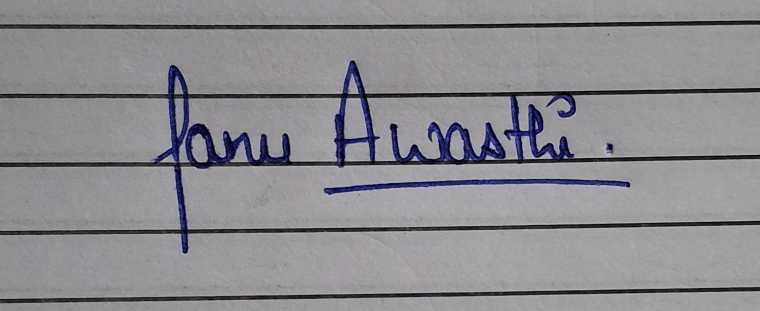 Janu Awasthi.